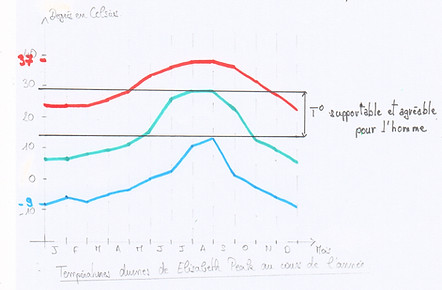 Degrés en Celsius
40
37
30
20
10
0
-9
-10
T° supportable et agréable
pour l'homme
J F M A M J J A S O N D Mois
Températures diurnes de Elisabeth Peak au cours de l'année